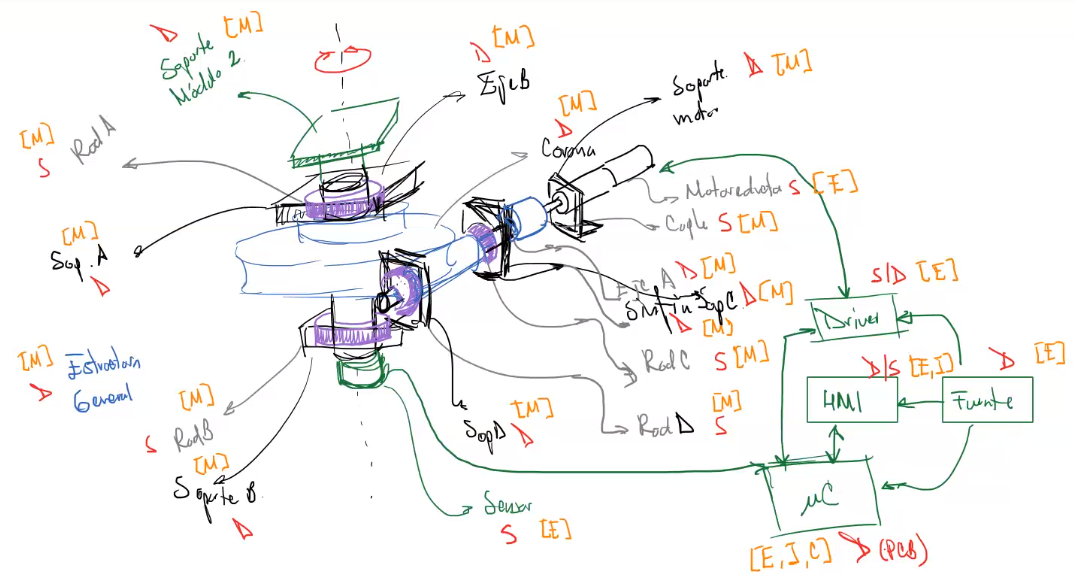 D [M]
Soporte
Módulo 2
D [M]
Eje B
[M]
D
Corona
Soporte D [M]
motor
[M]
S Rod A
Motoreductor S [E]
Cople S [M]
[M]
Sop. A
D
Eje A D [M]
Sinfin
Sop C D [M]
D [M]
S/D [E]
Driver
Rod C S [M]
[M] Estructura
D General
D/S [E,I]
HMI
D [E]
Fuente
[M]
S Rod B
[M]
Sop D D
[M]
Rod D S
[M]
Soporte B
D
Sensor
S [E]
μC
[E, I, C] D (PCB)